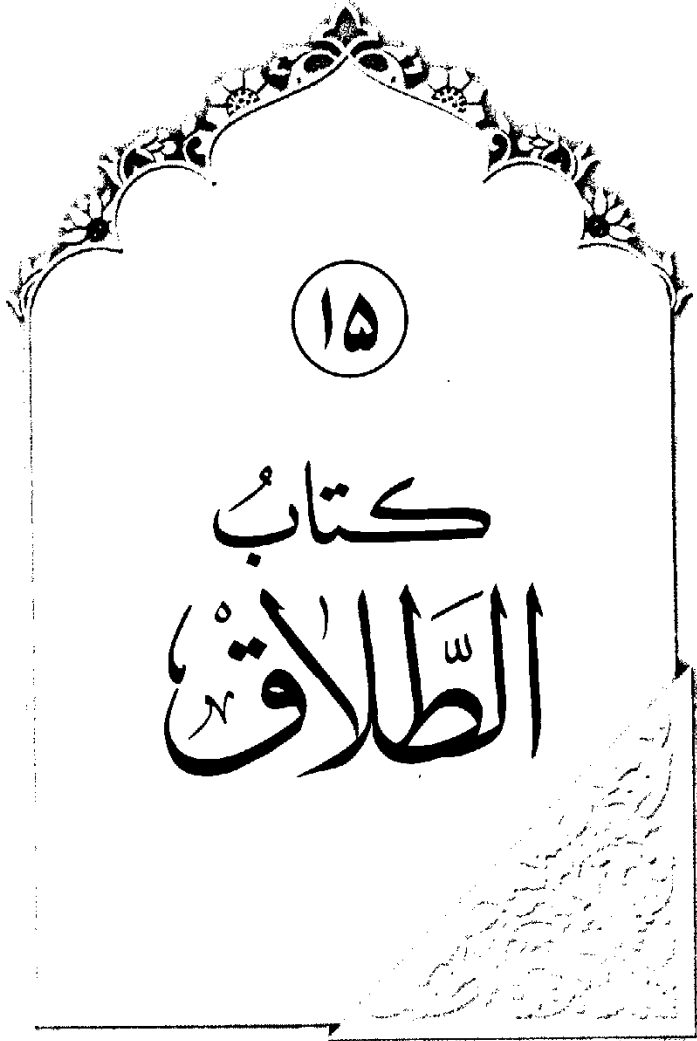 ۱۵
كتابُ
الطَّلاق